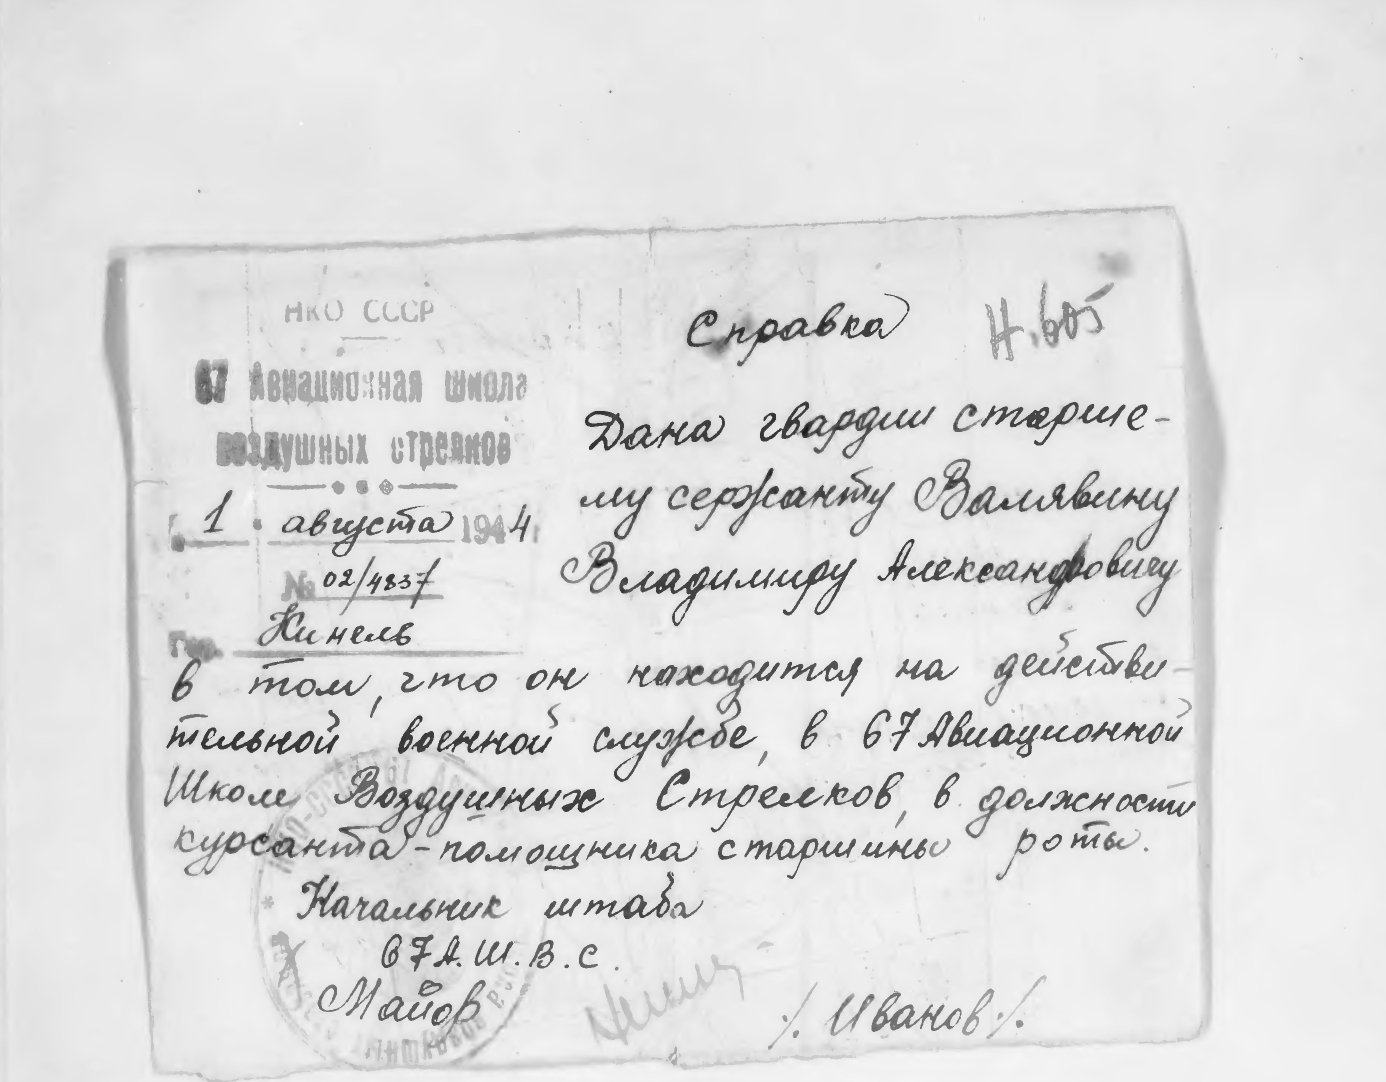 НКО СССР
67 Авиационная школа
воздушных стрелков
1 августа 1944 г.
№ 02/4837
Гор. Кинель
Справка
Н.605
Дана гвардии старше-
му сержанту Валявину
Владимиру Александровичу
в том, что он находится на действи-
тельной военной службе, в 67 Авиационной
Школе Воздушных Стрелков, в должности
курсанта-помощника старшины роты.
Начальник штаба
67 А.Ш.В.С.
Майор
/. Иванов ./